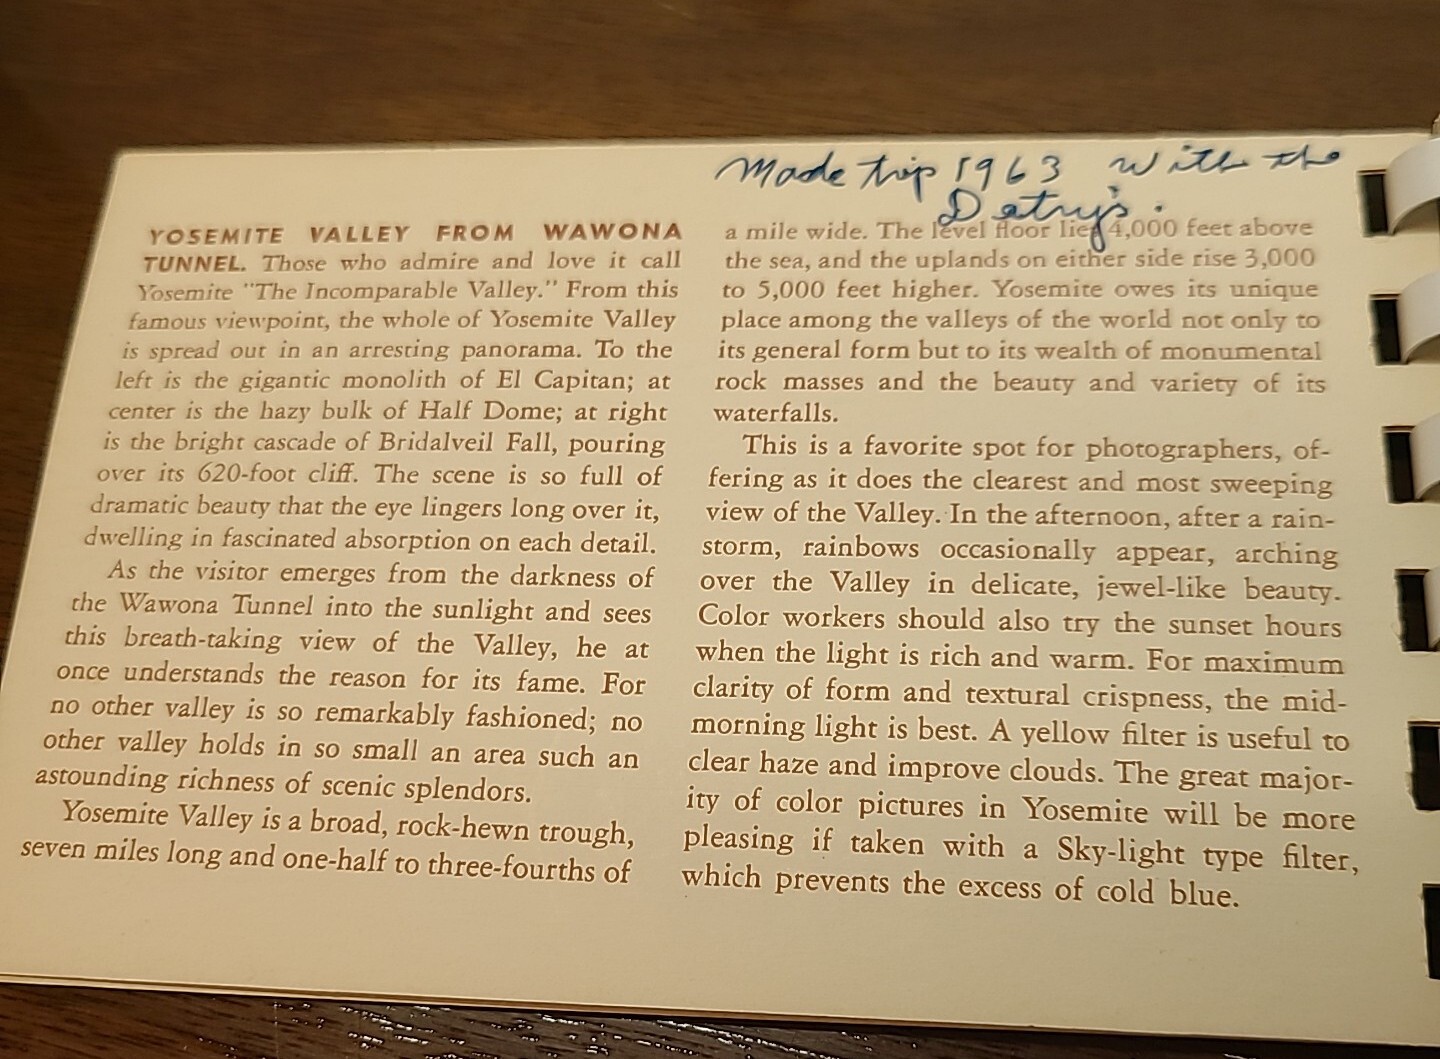 Made trip 1963 with the
Detry's.
YOSEMITE VALLEY FROM WAWONA
TUNNEL. Those who admire and love it call
Yosemite "The Incomparable Valley." From this
famous viewpoint, the whole of Yosemite Valley
is spread out in an arresting panorama. To the
left is the gigantic monolith of El Capitan; at
center is the hazy bulk of Half Dome; at right
is the bright cascade of Bridalveil Fall, pouring
over its 620-foot cliff. The scene is so full of
dramatic beauty that the eye lingers long over it,
dwelling in fascinated absorption on each detail.
As the visitor emerges from the darkness of
the Wawona Tunnel into the sunlight and sees
this breath-taking view of the Valley, he at
once understands the reason for its fame. For
no other valley is so remarkably fashioned; no
other valley holds in so small an area such an
astounding richness of scenic splendors.
Yosemite Valley is a broad, rock-hewn trough,
seven miles long and one-half to three-fourths of
a mile wide. The level floor lies 4,000 feet above
the sea, and the uplands on either side rise 3,000
to 5,000 feet higher. Yosemite owes its unique
place among the valleys of the world not only to
its general form but to its wealth of monumental
rock masses and the beauty and variety of its
waterfalls.
This is a favorite spot for photographers, of-
fering as it does the clearest and most sweeping
view of the Valley. In the afternoon, after a rain-
storm, rainbows occasionally appear, arching
over the Valley in delicate, jewel-like beauty.
Color workers should also try the sunset hours
when the light is rich and warm. For maximum
clarity of form and textural crispness, the mid-
morning light is best. A yellow filter is useful to
clear haze and improve clouds. The great major-
ity of color pictures in Yosemite will be more
pleasing if taken with a Sky-light type filter,
which prevents the excess of cold blue.